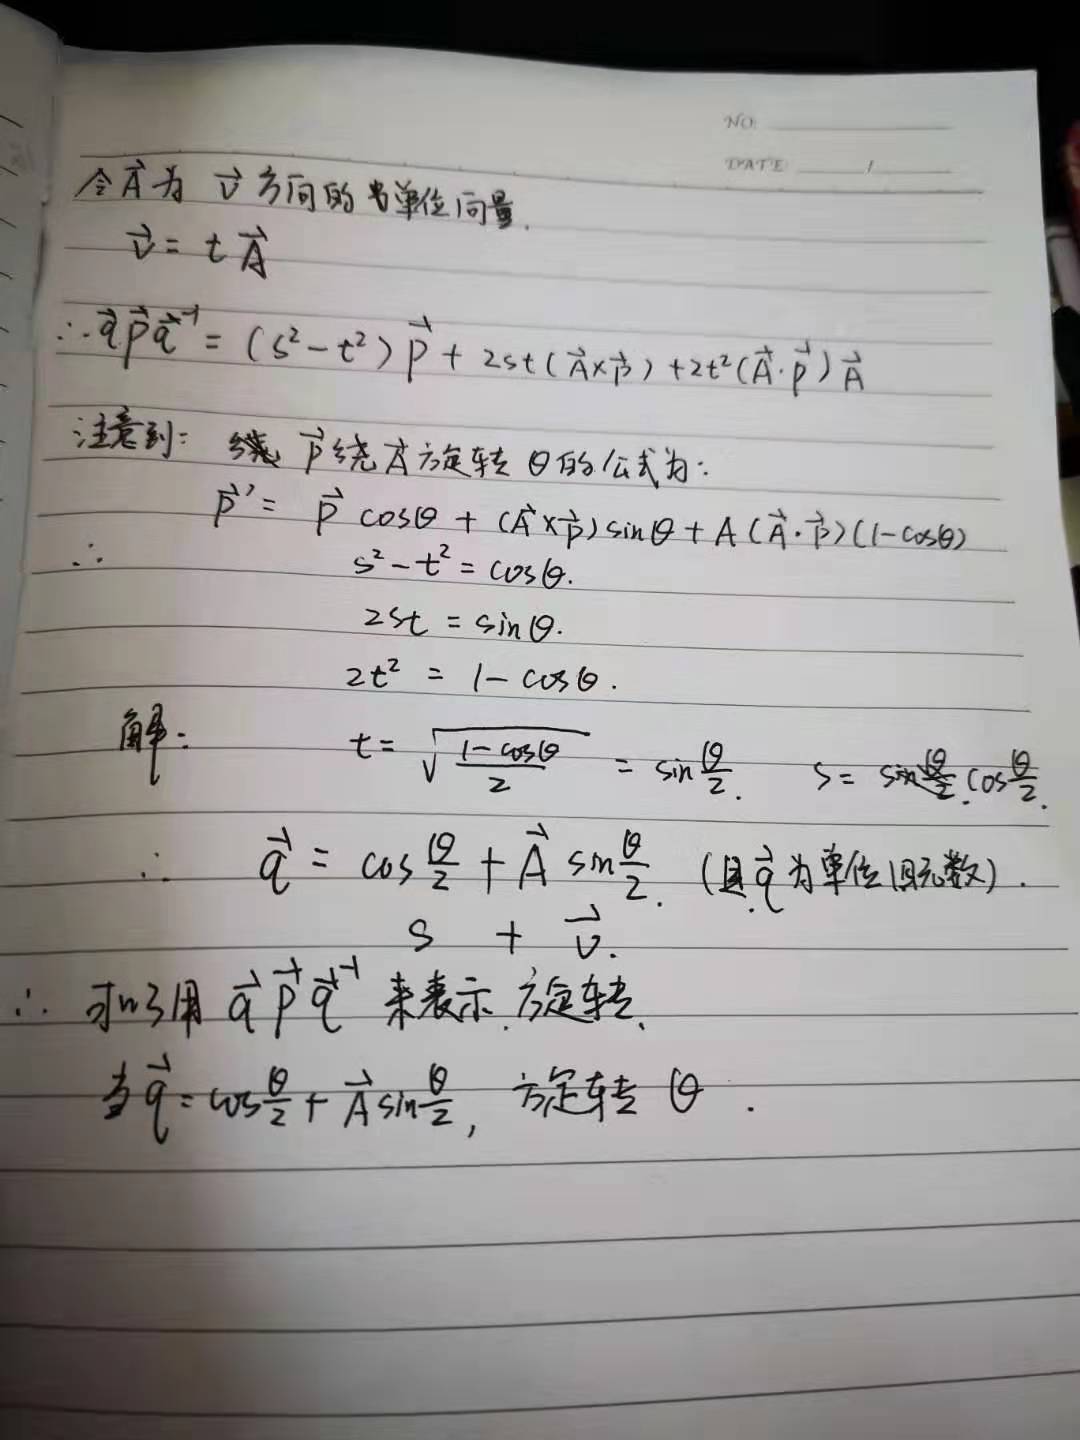 NO.
DATE /
令A⃗为 v⃗方向的单位向量.
v⃗ = tA⃗
∴ q⃗p⃗q⃗⁻¹ = (s²-t²)p⃗ + 2st(A⃗×p⃗) + 2t²(A⃗·p⃗)A⃗
注意到: p⃗绕A⃗旋转θ的公式为:
p⃗' = p⃗ cosθ + (A⃗×p⃗)sinθ + A(A⃗·p⃗)(1-cosθ)
∴ s²-t² = cosθ.
2st = sinθ.
2t² = 1-cosθ.
解: t = √((1-cosθ)/2) = sin θ/2. s = cos θ/2.
∴ q⃗ = cos θ/2 + A⃗ sin θ/2. (且q⃗为单位四元数).
s + v⃗.
∴ 可以用 q⃗p⃗q⃗⁻¹ 来表示旋转.
当q⃗ = cos θ/2 + A⃗ sin θ/2, 旋转θ.